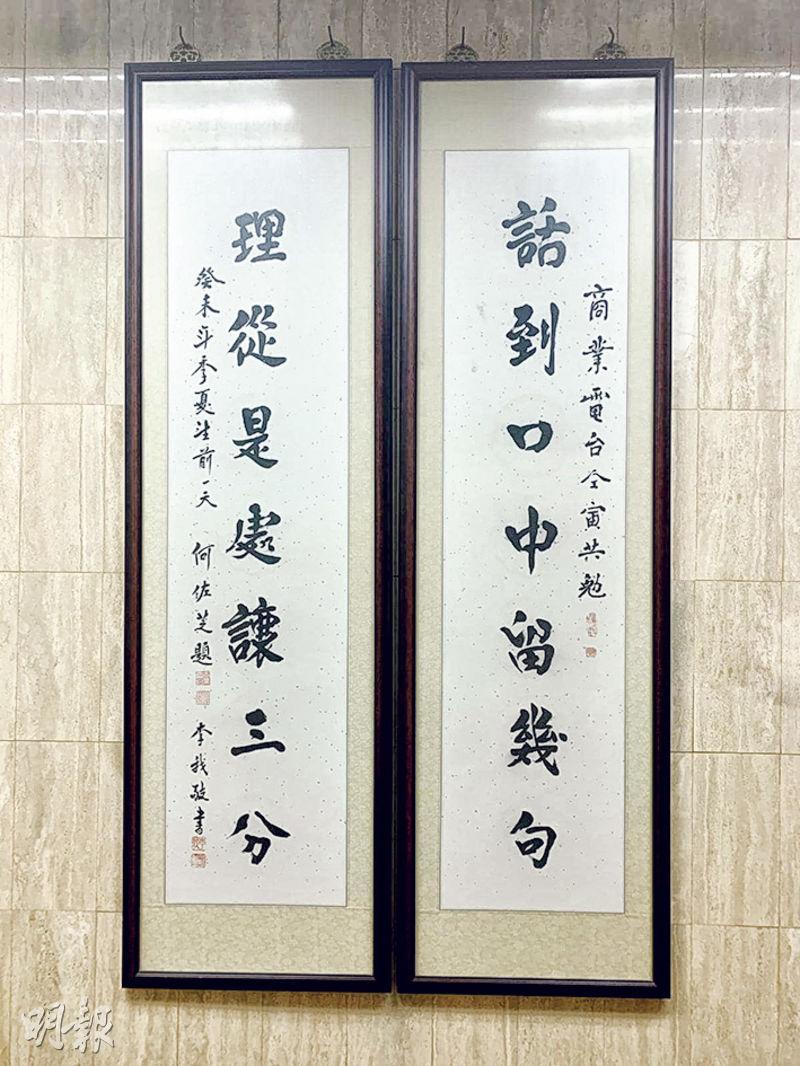 商業電台仝寅共勉
話到口中留幾句
理從是處讓三分
癸未年季夏生前一天 何佐芝題
李我敬書
明報